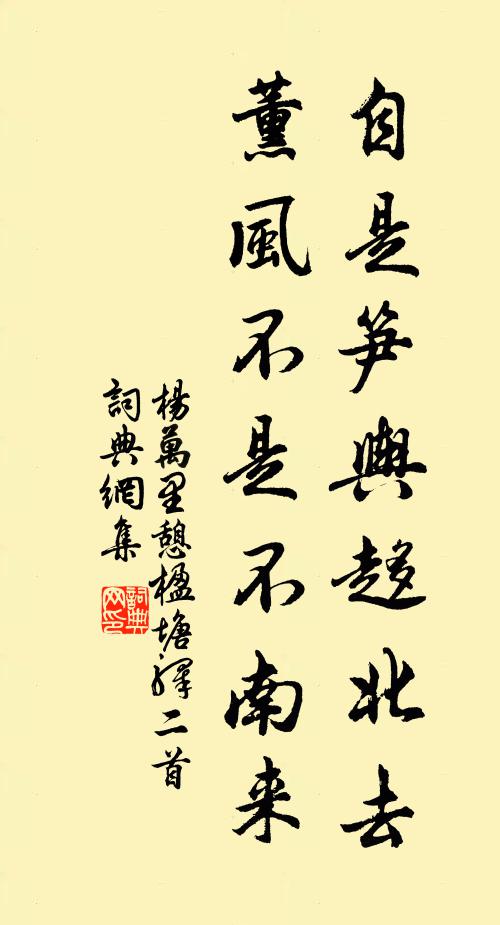 自是笋輿趍北去
薰風不是不南来
楊萬里憩楹塘驛二首
詞典網集
詞典
网印